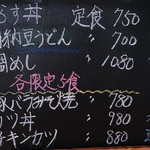 らす丼 定食 750
納豆うどん 〃 700
鯛めし 〃 1080
各限定5食
豚バラみそ焼 〃 780
カツ丼 〃 980
チキンカツ 〃 880